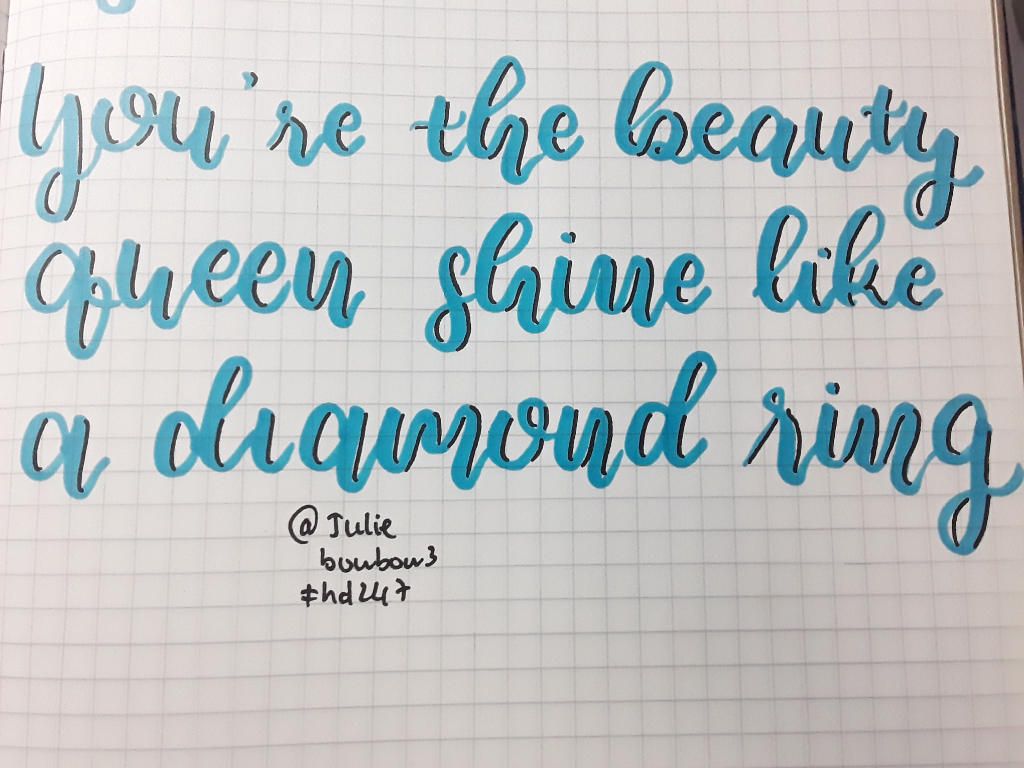 You're the beauty
queen shine like
a diamond ring
@Julie
boubou3
#hd247